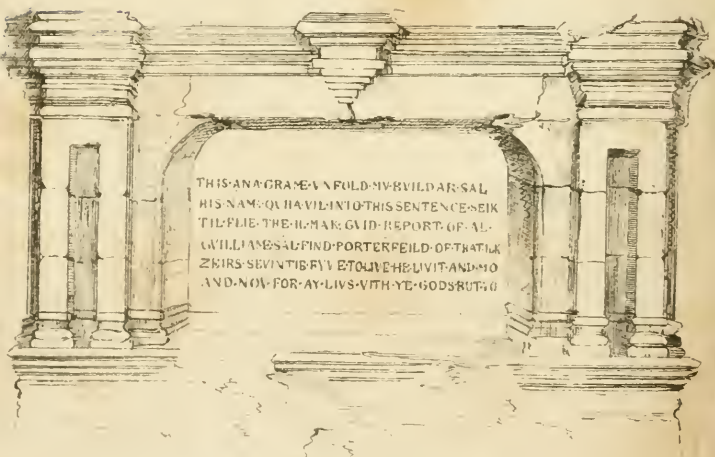 THIS·ANAGRAME·VNFOLD·MY·BVILDAR·SAL
HIS·NAME·QVHA·VIL·INTO·THIS·SENTENCE·SEIK
TIL·FLIE·THE·IL·MAK·GVID·REPORT·OF·AL·
GVILLIAME·SAL·FIND·PORTERFEILD·OF·THAT·ILK
ZEIRS·SEVINTIE·FYVE·TO·LIVE·HE·LIVIT·AND·MO
AND·NOV·FOR·AY·LIVS·VITH·YE·GODS